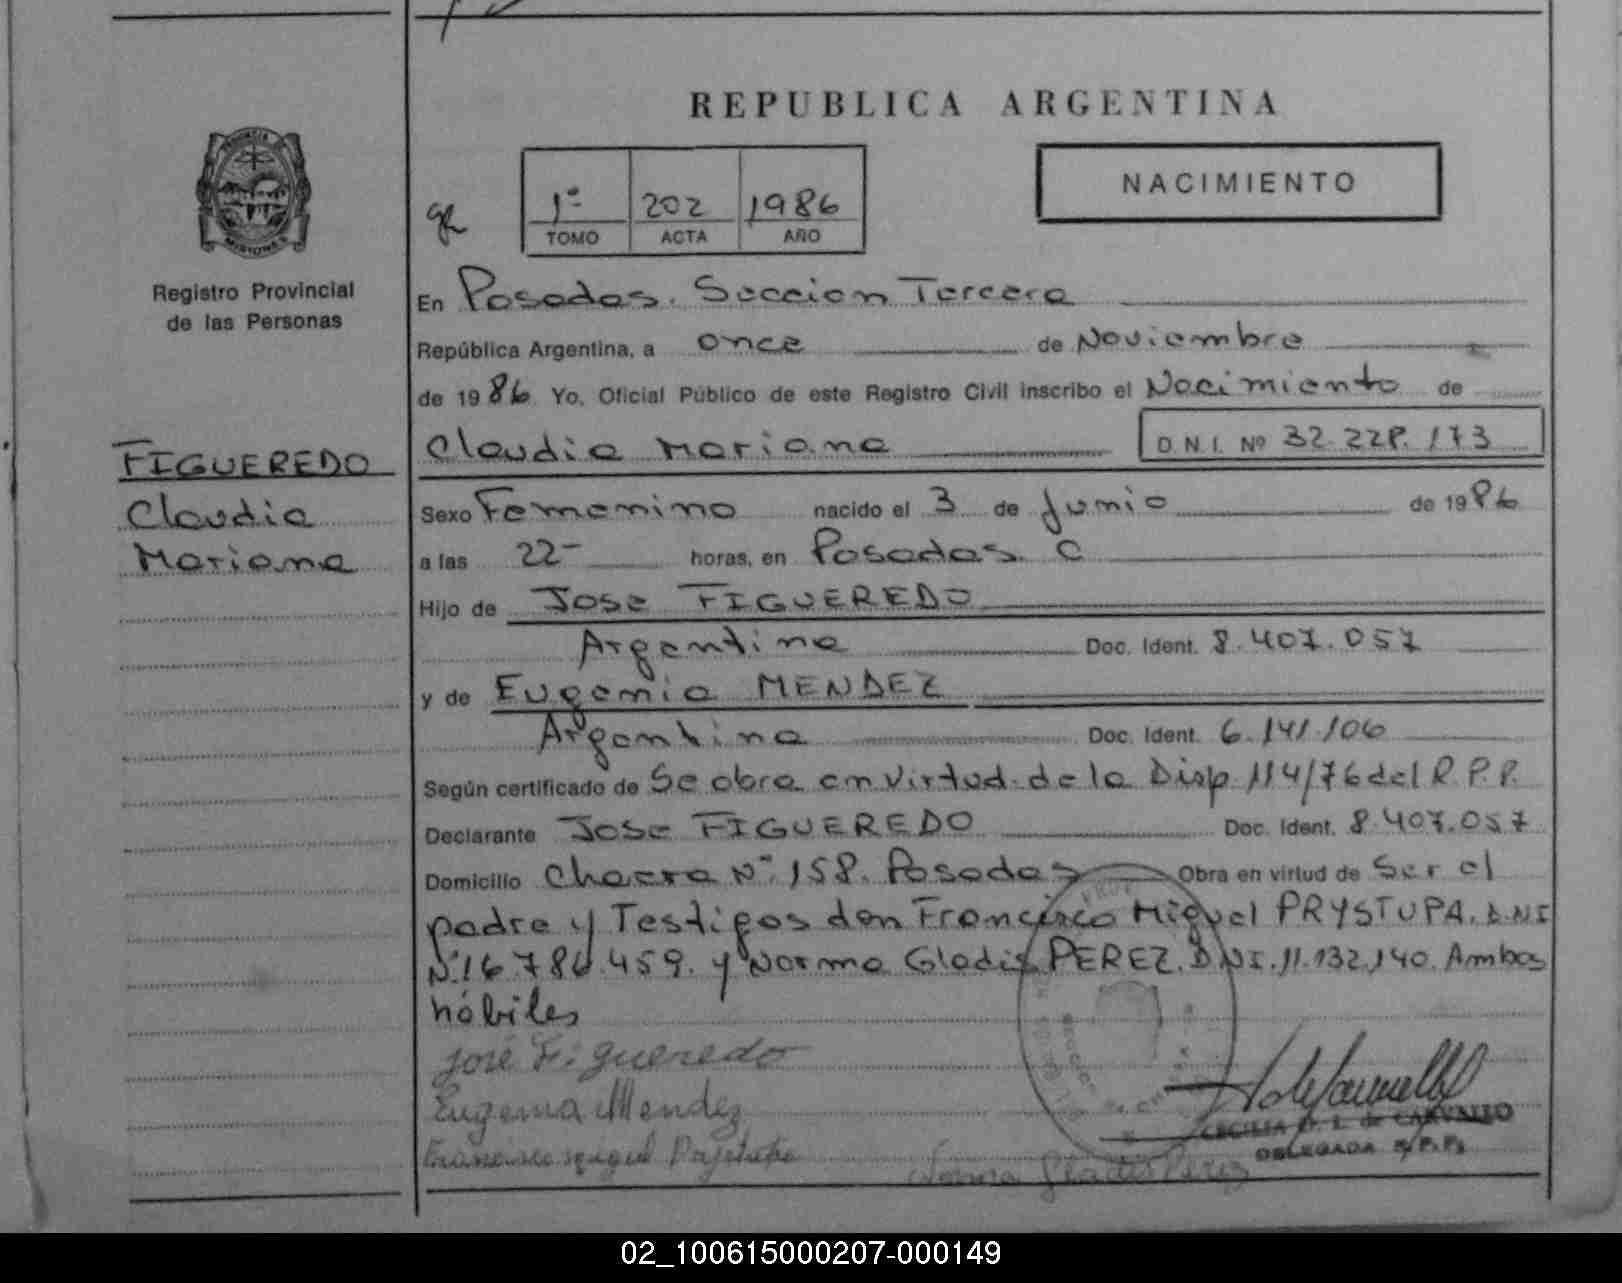 REPUBLICA ARGENTINA
PROVINCIA DE
MISIONES
Registro Provincial
de las Personas
1º 202 1986
TOMO ACTA AÑO
NACIMIENTO
En Posadas. Seccion Tercera
República Argentina, a once de Noviembre
de 1986 Yo, Oficial Público de este Registro Civil inscribo el Nacimiento de
FIGUEREDO
Claudia
Mariana
Claudia Mariana D.N.I. Nº 32.228.173
Sexo Femenino nacido el 3 de Junio de 1986
a las 22- horas, en Posadas. C
Hijo de Jose FIGUEREDO
Argentina Doc. Ident. 8.407.057
y de Eugenia MENDEZ
Argentina Doc. Ident. 6.141.106
Según certificado de Se obra en virtud de la Disp. 114/76 del R.P.P.
Declarante Jose FIGUEREDO Doc. Ident. 8.407.057
Domicilio Chacra Nº 158. Posadas Obra en virtud de Ser el
padre y Testigos don Francisco Miguel PRYSTUPA. D.N.I
Nº 16.786.459. y Norma Gladis PEREZ. D.N.I. 11.132.140. Ambos
hábiles
José Figueredo
Eugenia Mendez
Francisco Miguel Prystupa
Norma Gladis Perez
CECILIA D. L. de CARVALLO
DELEGADA R.P.P.
02_100615000207-000149